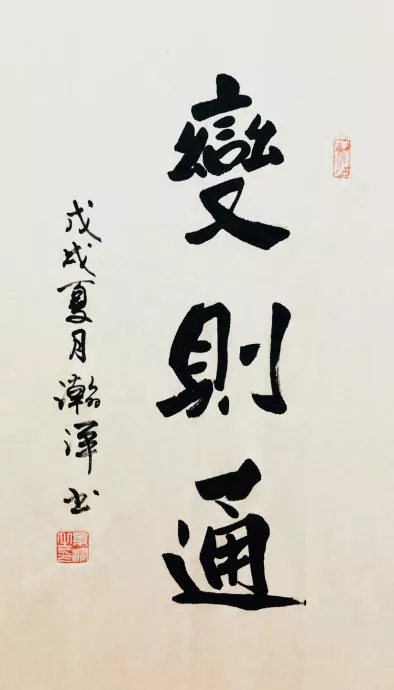 變則通
戊戌夏月瀚澤书